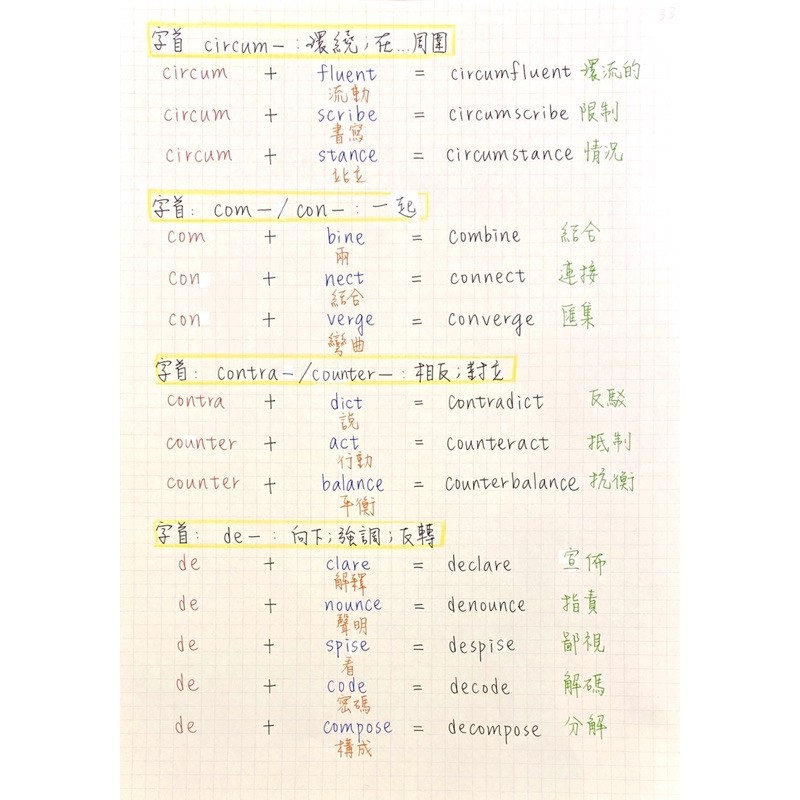 字首 circum- : 環繞;在...周圍
circum + fluent = circumfluent 環流的
流動
circum + scribe = circumscribe 限制
書寫
circum + stance = circumstance 情況
站立
字首: com-/con- : 一起
com + bine = combine 結合
兩
con + nect = connect 連接
結合
con + verge = converge 匯集
彎曲
字首: contra-/counter- : 相反;對立
contra + dict = contradict 反駁
說
counter + act = counteract 抵制
行動
counter + balance = counterbalance 抗衡
平衡
字首: de- : 向下;強調;反轉
de + clare = declare 宣佈
解釋
de + nounce = denounce 指責
聲明
de + spise = despise 鄙視
看
de + code = decode 解碼
密碼
de + compose = decompose 分解
構成